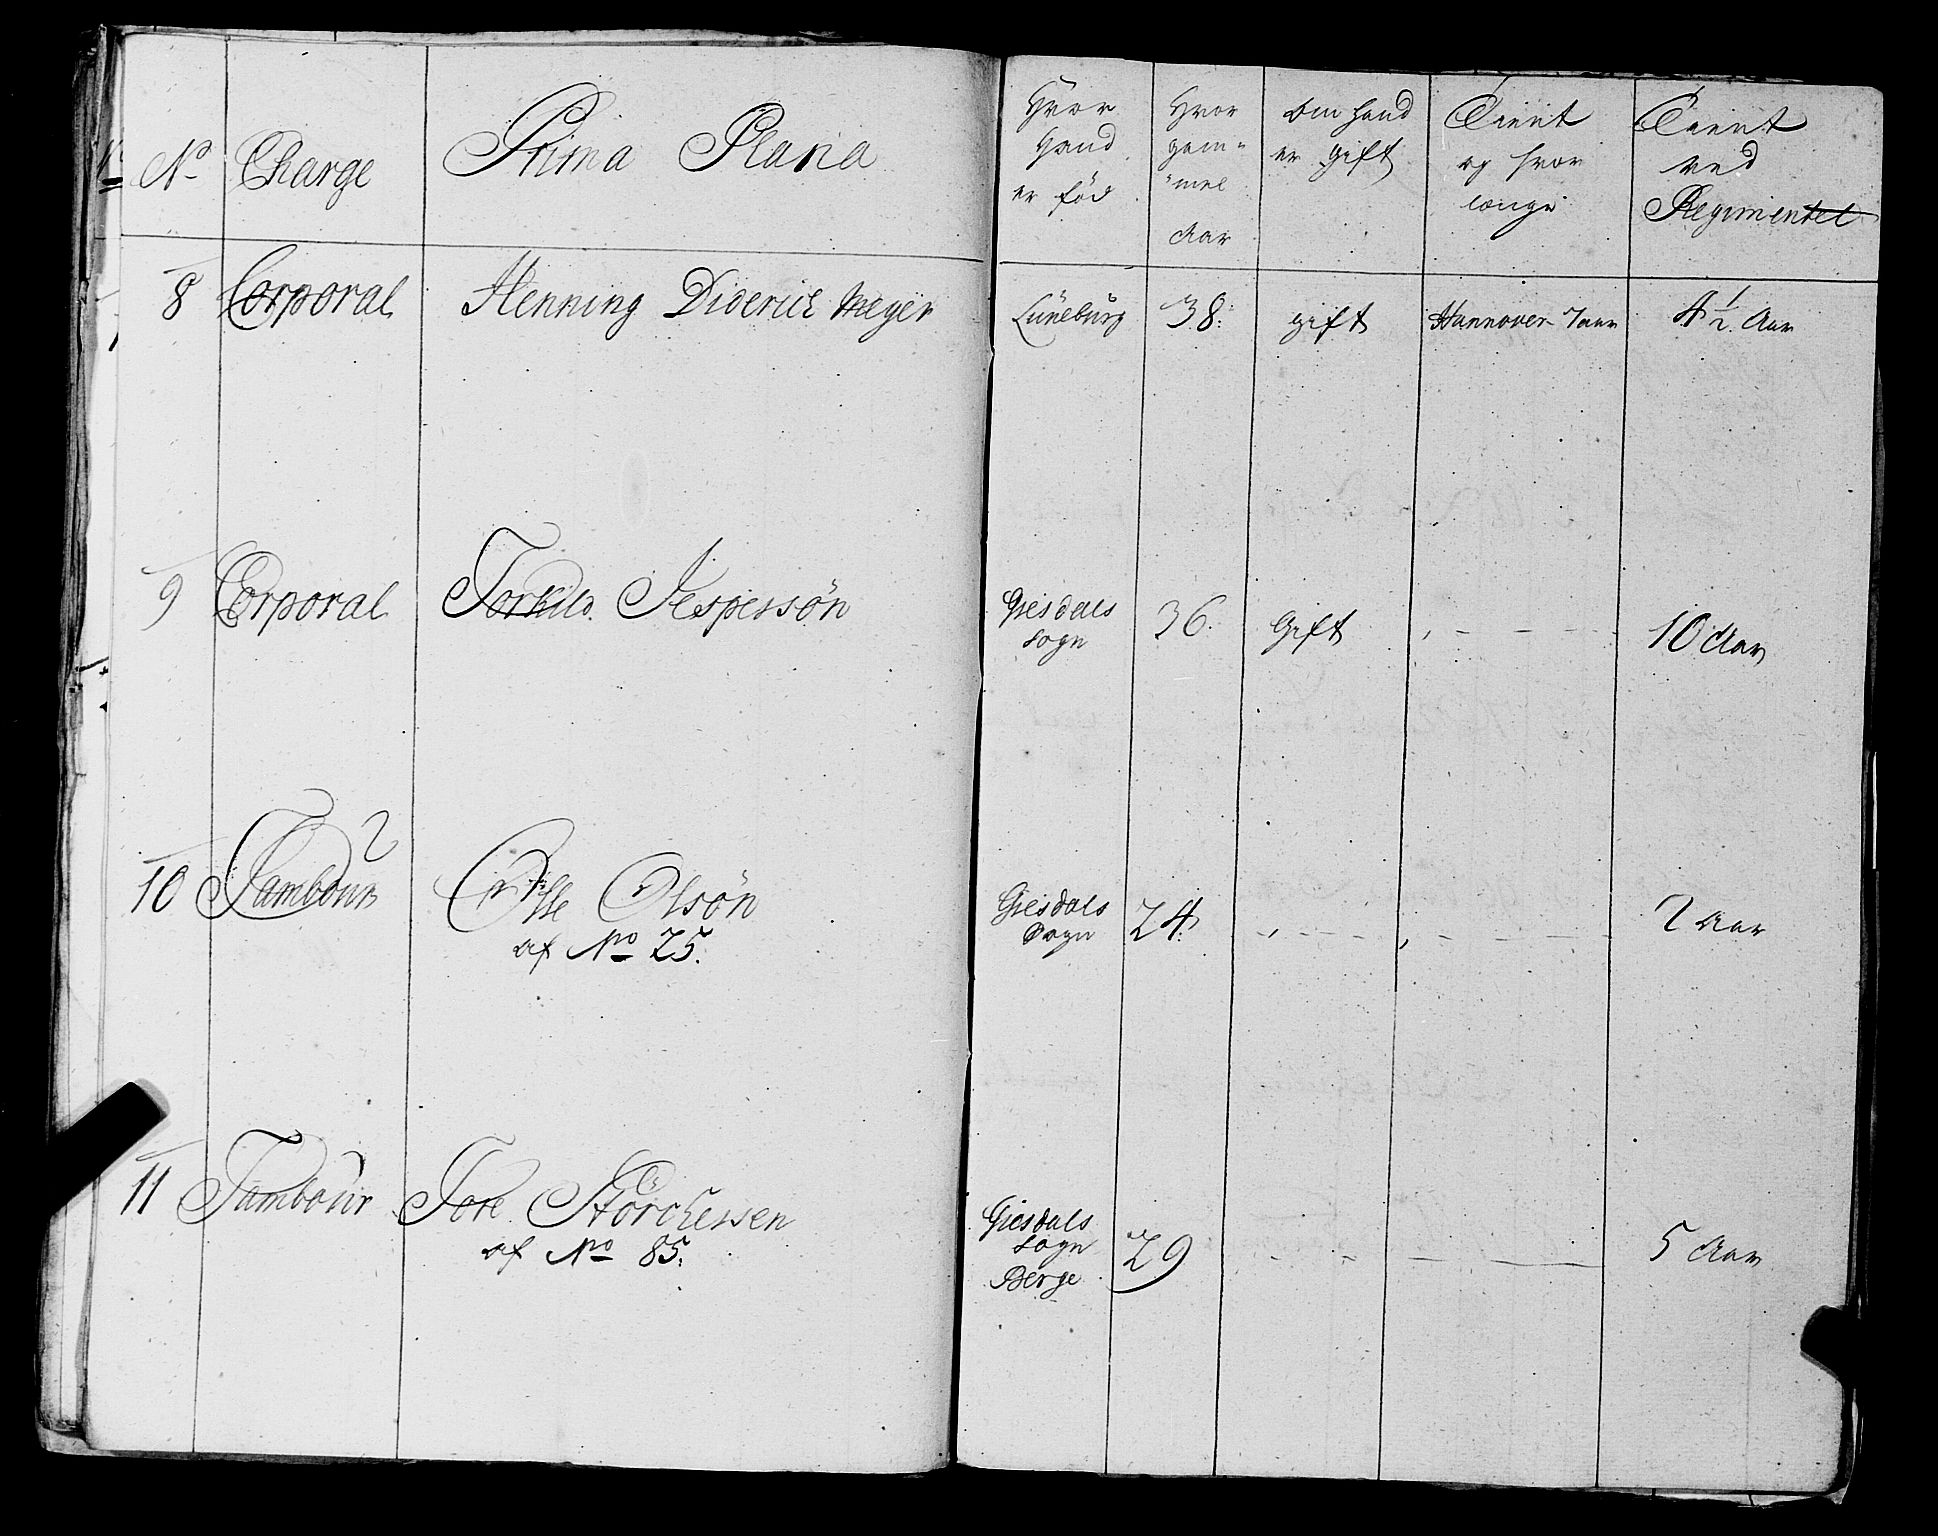 No Charge Prima Plana
Hvor
Hand
er fød
Hvor
gam=
=mel
Aar
Om hand
er gift
Tient
og hvor
længe
Tient
ved
Regimentet
8 Corporal Henning Diderich Meyer Lüneburg 38. gift Hannover 7 aar 4 1/2 Aar
9 Corporal Torkild Jespersøn Giesdals
sogn 36. Gift - - - 10 Aar
10 Tambour Olle Olsøn Giesdals
Sogn 24. - - - - - - 2 Aar
af No 25.
11 Tambour Tore Störchersen Giesdals
sogn
Berge 29 - - - - 5 Aar
af No 85.